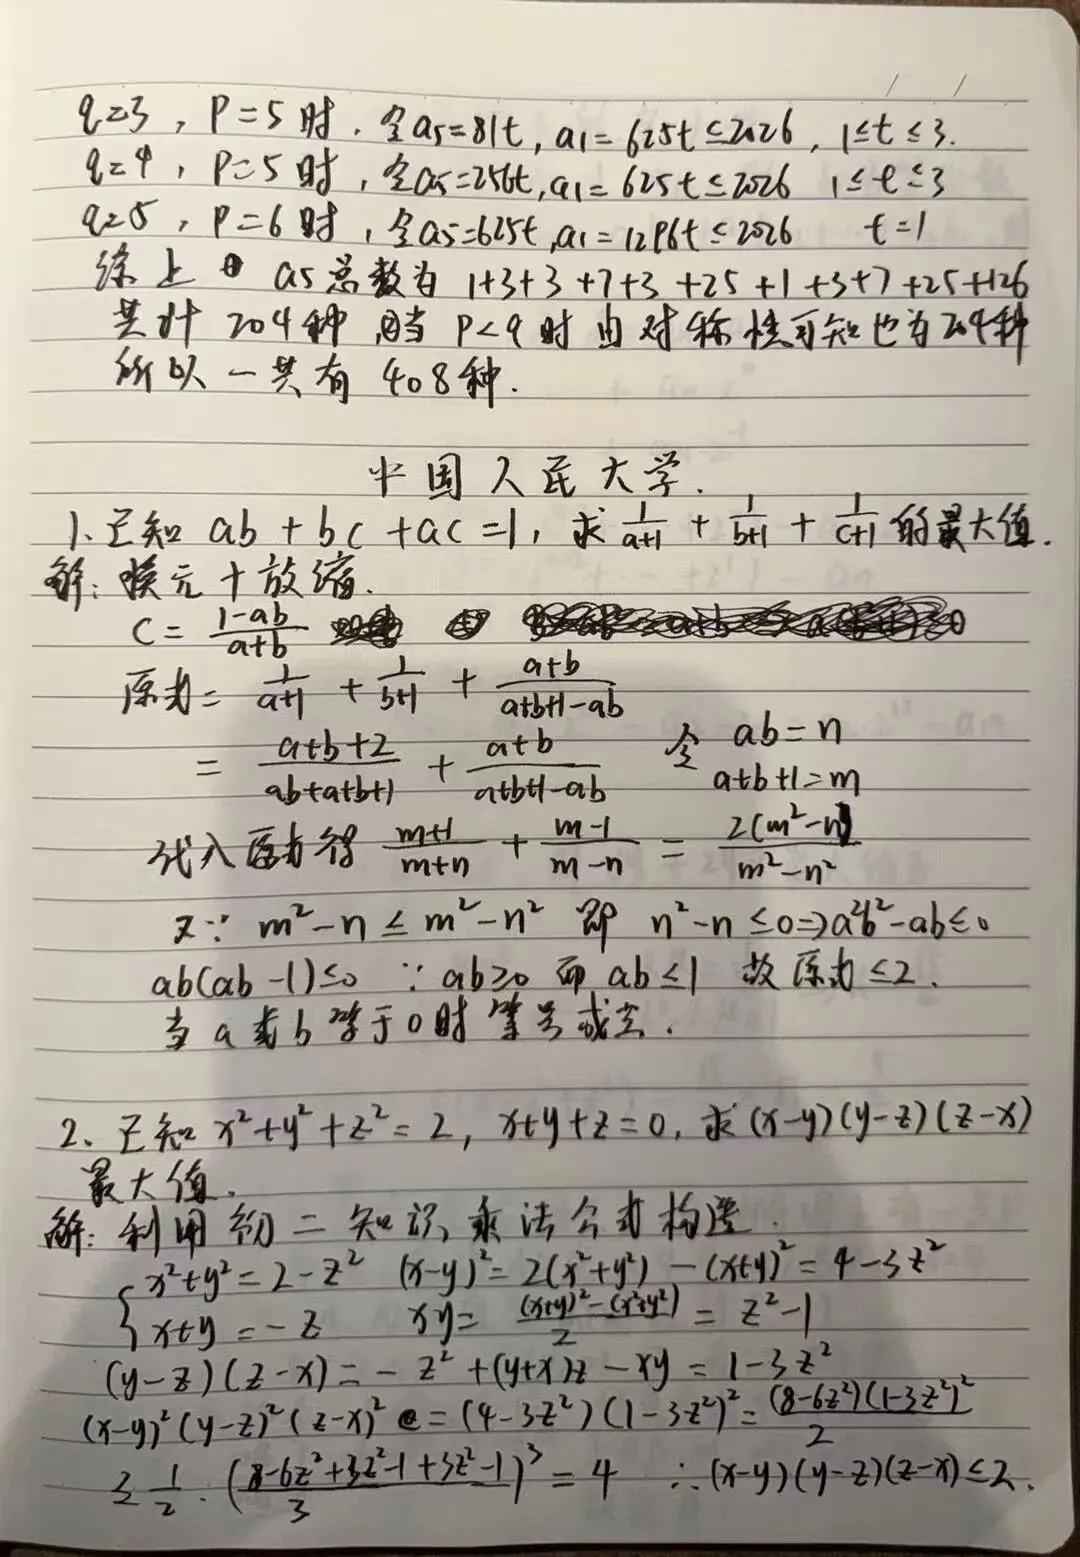 q=3, p=5时, 令a5=81t, a1=625t≤2026, 1≤t≤3.
q=4, p=5时, 令a5=256t, a1=625t≤2026 1≤t≤3
q=5, p=6时, 令a5=625t, a1=1296t≤2026 t=1
综上 a5总数为 1+3+3+7+3+25+1+3+7+25+126
共计 204种, 当 p<q 时 由对称性可知也为204种
所以一共有 408种.
中国人民大学.
1.已知 ab+bc+ac=1, 求 1/(a+1) + 1/(b+1) + 1/(c+1) 的最大值.
解: 换元+放缩.
c = (1-ab)/(a+b)
原式= 1/(a+1) + 1/(b+1) + (a+b)/(a+b+1-ab)
= (a+b+2)/(ab+a+b+1) + (a+b)/(a+b+1-ab) 令 ab=n a+b+1=m
代入原式得 (m+1)/(m+n) + (m-1)/(m-n) = 2(m²-n)/(m²-n²)
又∵ m²-n ≤ m²-n² 即 n²-n≤0⇒a²b²-ab≤0
ab(ab-1)≤0 ∵ab≥0 而 ab≤1 故原式≤2.
当 a或b等于0时等号成立.
2、已知 x²+y²+z²=2, x+y+z=0, 求(x-y)(y-z)(z-x)
最大值.
解: 利用初二知识, 乘法公式构造.
{x²+y²=2-z² (x-y)²=2(x²+y²)-(x+y)²=4-3z²
x+y=-z xy=((x+y)²-(x²+y²))/2 = z²-1
(y-z)(z-x)=-z²+(y+x)z-xy=1-3z²
(x-y)²(y-z)²(z-x)²=(4-3z²)(1-3z²)²=(8-6z²)(1-3z²)²/2
≤ 1/2·((8-6z²+3z²-1+3z²-1)/3)³=4 ∴(x-y)(y-z)(z-x)≤2.